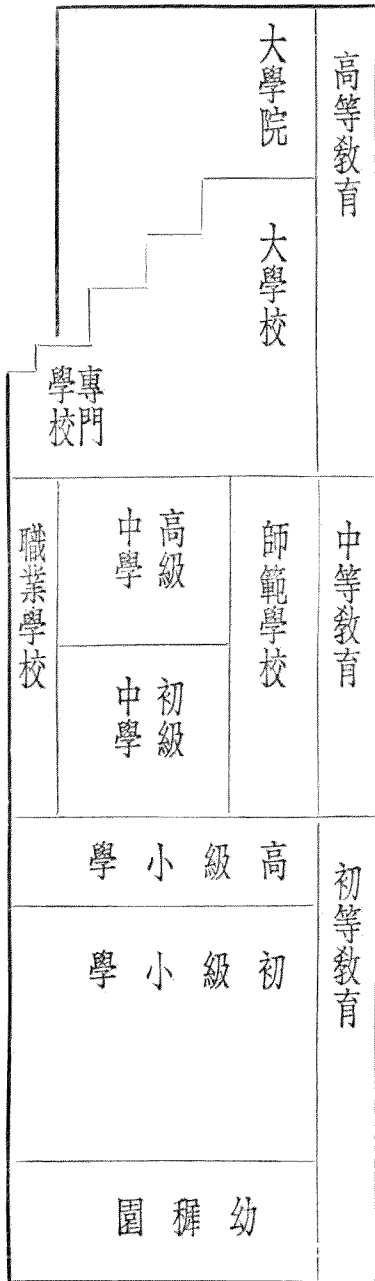 高等教育
大學院
大學校
專門
學校
中等教育
師範學校
高級
中學
初級
中學
職業學校
初等教育
高級小學
初級小學
幼穉園